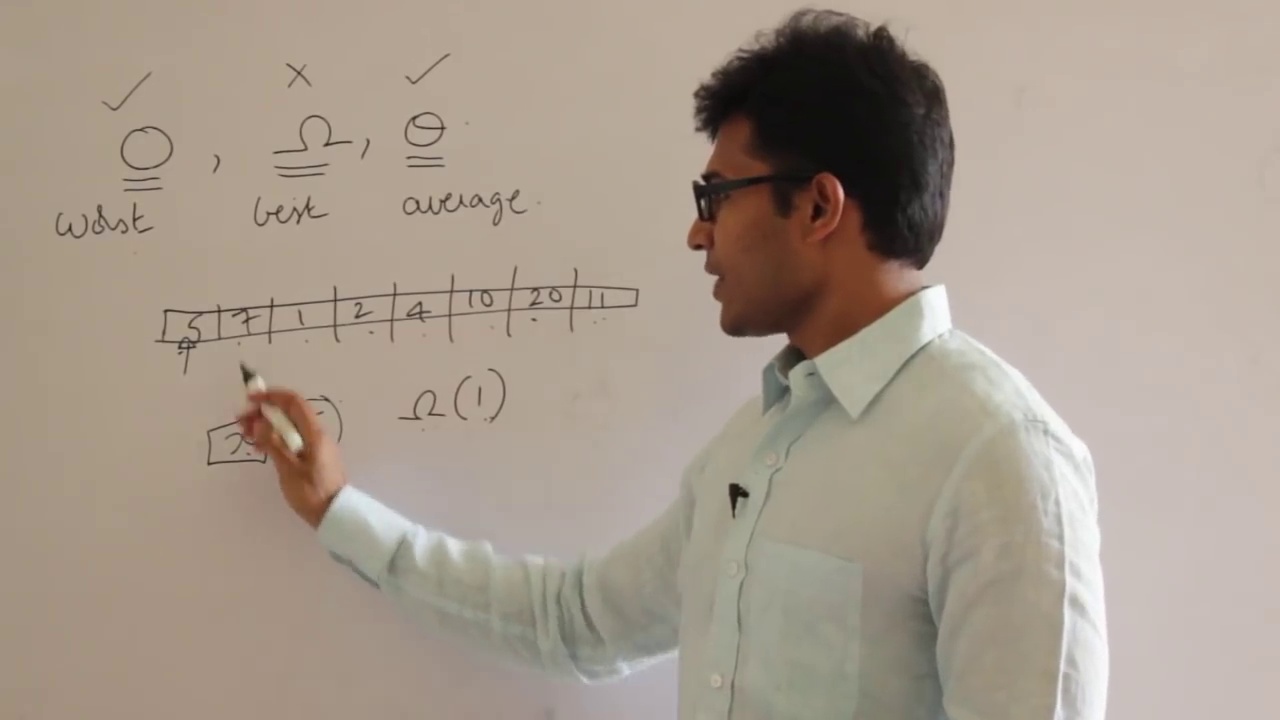 ✓ × ✓
O , Ω , Θ
worst best average
5 7 1 2 4 10 20 11
Ω(1)